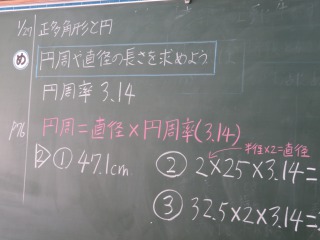 1/27 正多角形と円
め 円周や直径の長さを求めよう
円周率 3.14
P76 円周=直径×円周率(3.14)
半径×2=直径
2 ① 47.1cm ② 2×25×3.14=
③ 32.5×2×3.14=